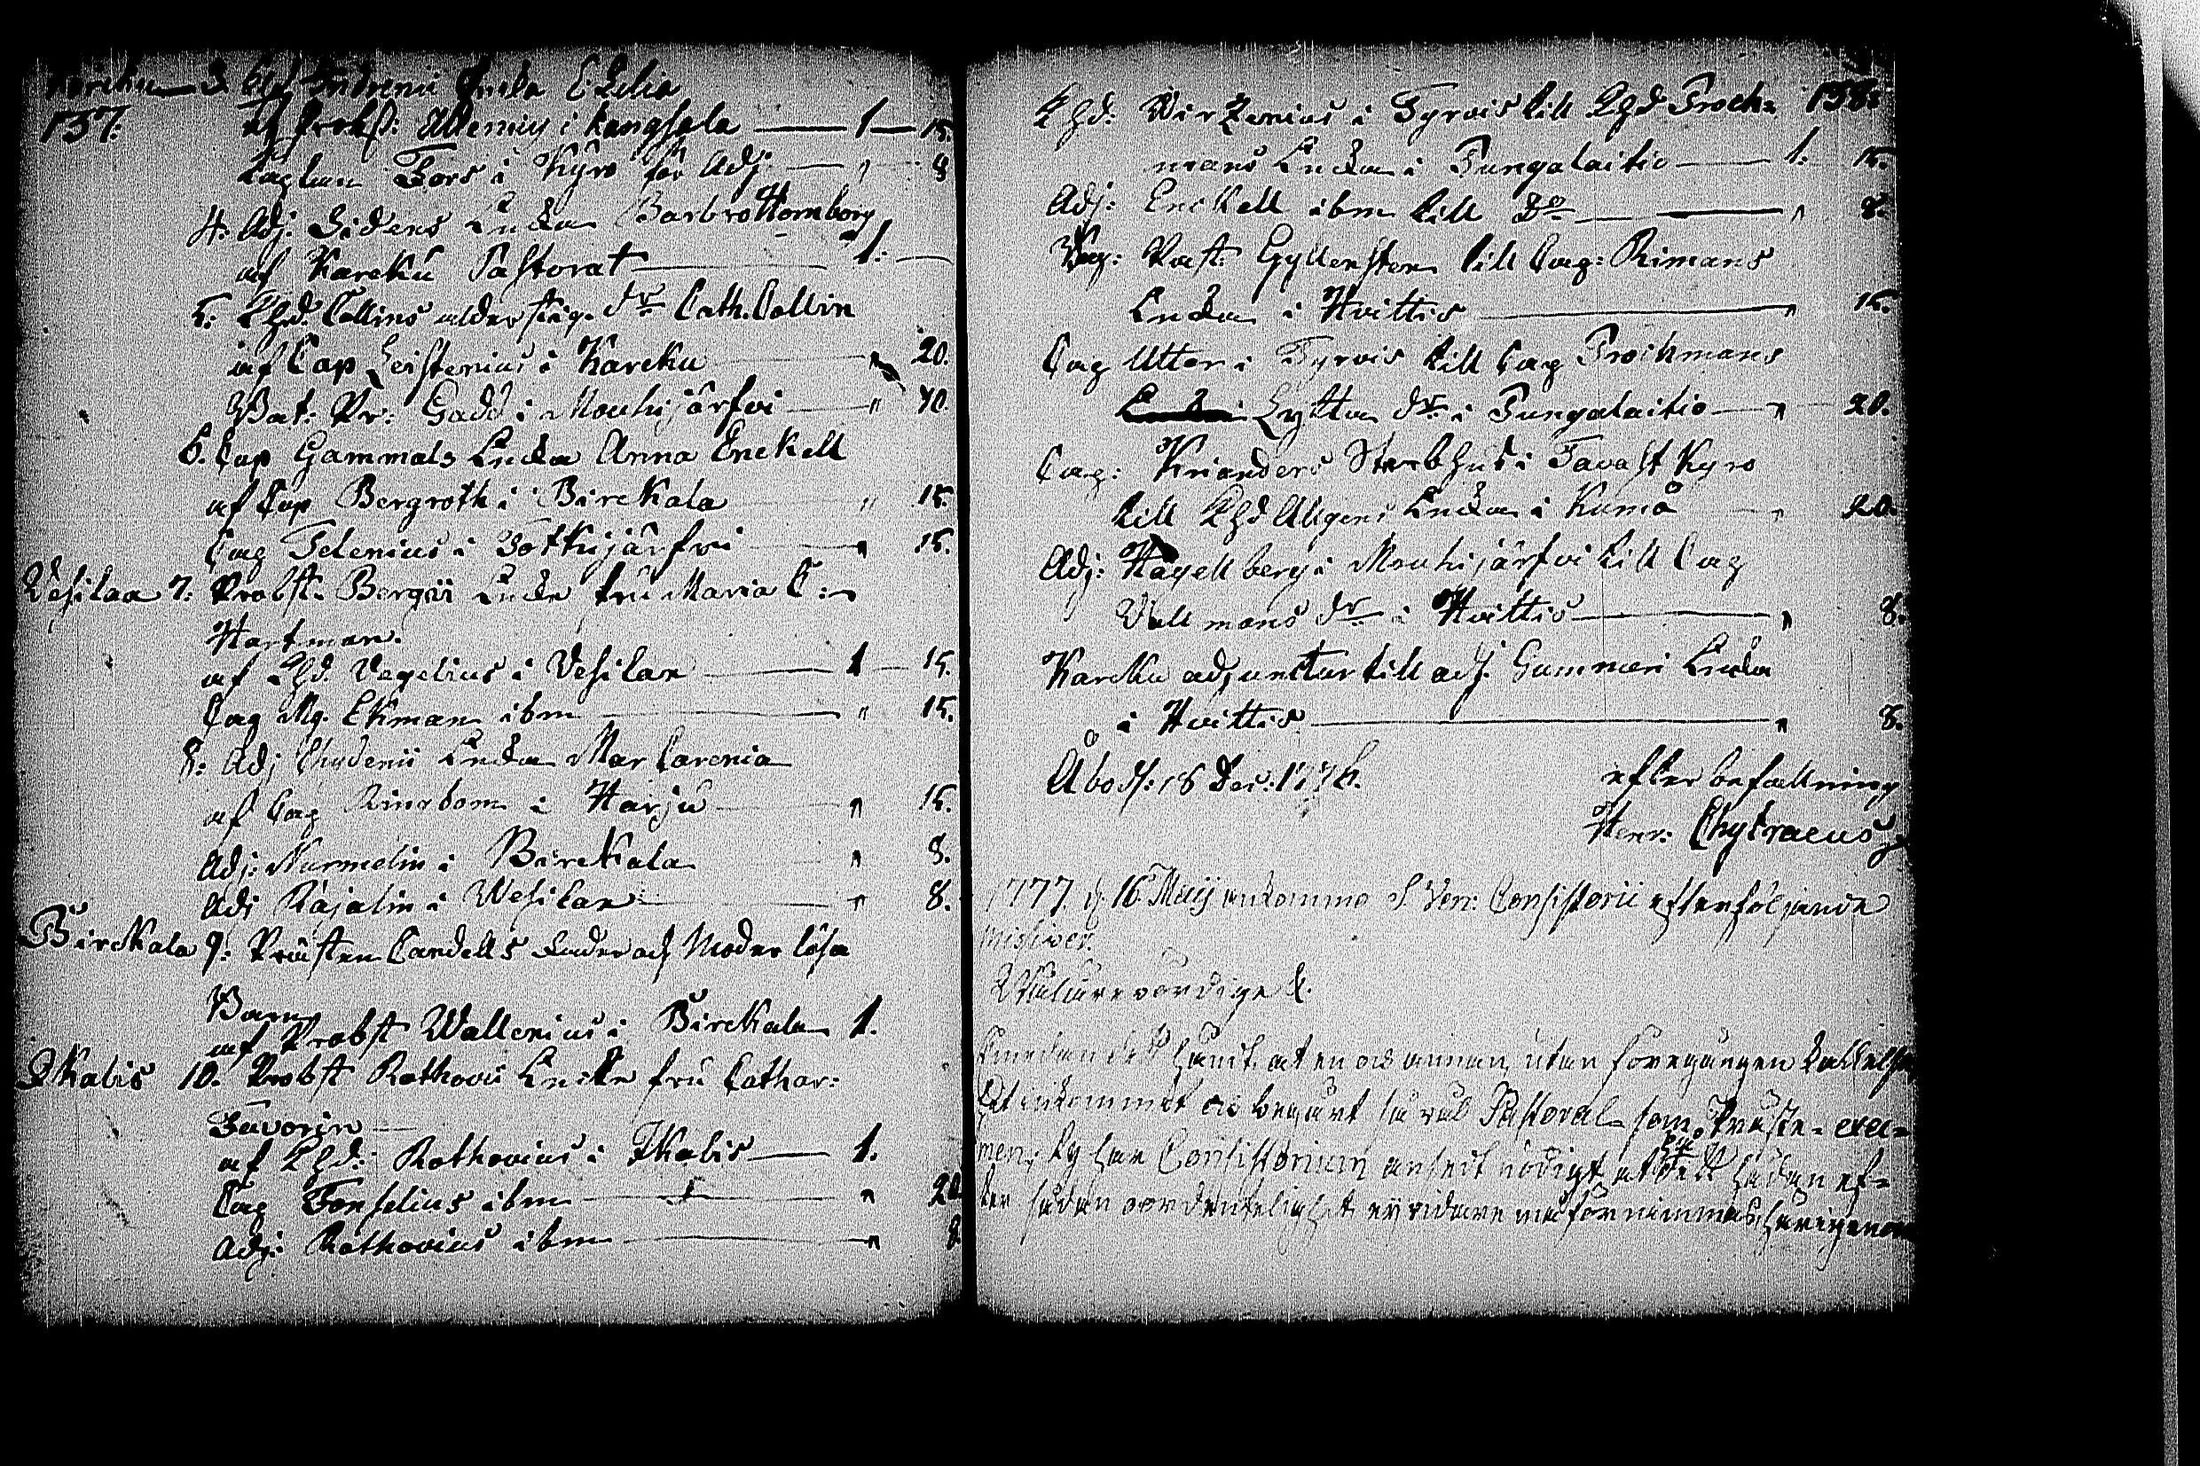 Karcku 3 Enka C. Lilia
137.
af Probst: Allenius i Kangsala 1 15.
Caplan Fors i Kyro för Adj: " 8
4: Adj: Sidens Encka Barbro Hornborg
af Karcku Pastorat 1:
5: Khd: Collins alderstig. dr Cath. Collin
af Cap Leistenius i Karcku " 20.
Vat: Pr: Gadd i Mouhijärfvi " 40.
6. Cap Gammals Encka Anna Enckell
af Cap Bergroth i Birckala " 15.
Cap Telenius i Tottijärfvi " 15.
Vesilax 7: Probst: Bergii Encka fru Maria C:
Hartman.
af Khd. Vegelius i Vesilax 1 15.
Cap Mg. Ekman ibm " 15.
8: Adj Chydenii Encka Mar Carenia
af Cap Ringbom i Harju " 15.
Adj: Nurmelin i Birckala " 8.
Adj Rajalin i Wesilax " 8.
Birckala 9: Prästen Candells fader och Moder lösa
Barn
af Probst Wallenius i Birckala 1.
Ikalis 10. Probst Rothovii Encka fru Cathar:
Favorin
af Khd: Rothovius i Ikalis 1.
Cap Fonselius ibm " 20
Adj: Rothovius ibm " 8
138.
Khd: Wirzenius i Tyrvis till Khd Proch=
mans Encka i Pungalaitio 1. 15.
Adj: Enckell ibm till Do " 8.
Past. Gyllensten till Cap: Rimans
Encka i Hvittis " 15.
Cap Utter i Tyrvis till Cap Prochmans
Lytta dr i Pungalaitio " 20.
Cap: Krianders Sterbhus i Tavast Kyro
till Khd Allgens Encka i Kumo " 20.
Adj: Hagellberg i Mouhijärfvi till Cap
Vallmans dr i Hvittis " 8.
Karcku adjunctur till adj. Gummeri Encka
i Hvittis " 8.
Åbo d: 18 Dec: 1776.
efter befallning
Henr: Chytraeus
1777 d. 16 Maij ankommo S. Ven: Consistorii efterföljande
missiver.
Vällärevördige &.
Emedan det händt at en och annan, utan föregången kallelse
hit inkommit och begärt så väl Pastoral- som Präste- exa=
men, ty har Consistorium ansedt nödigt, at på det hädan ef=
ter sådan oordentelighet ej vidare må förnimmas, härigenom